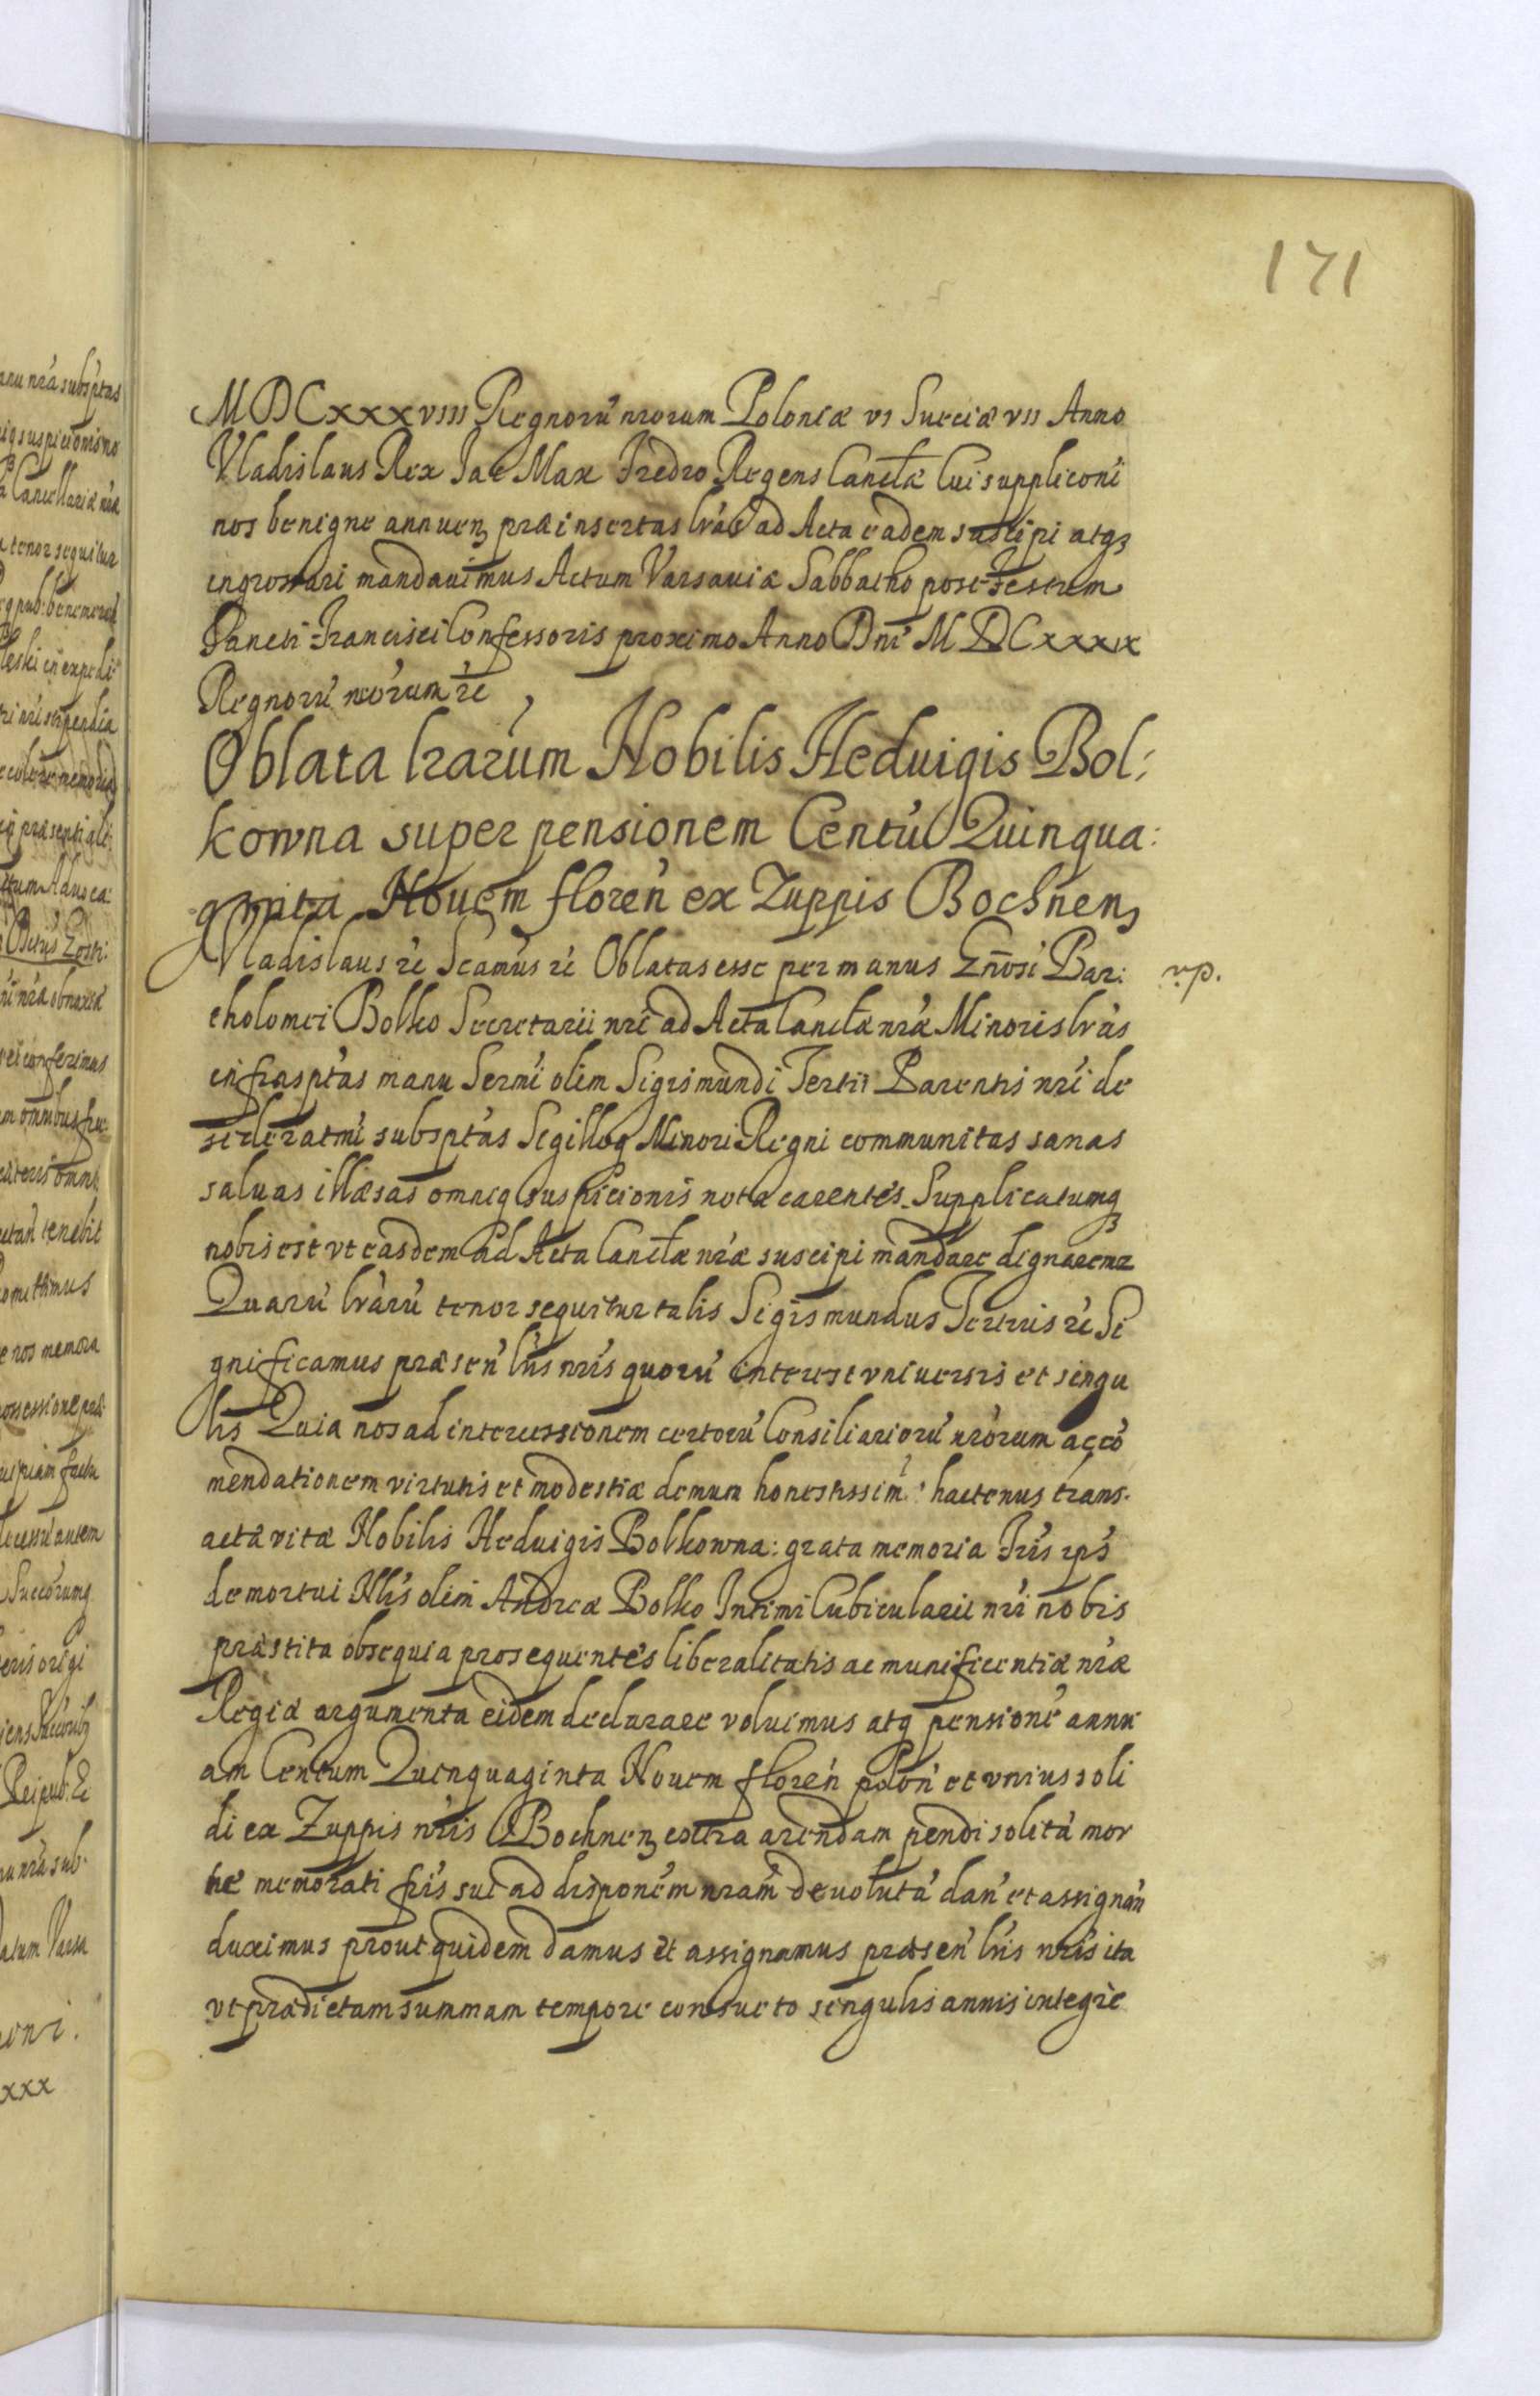 171
MDCxxxviii Regnorú nrorum Poloniæ vi Sueciæ vii Anno
Vladislaus Rex Jac Max Fredro Regens Canclæ Cui suppliconi
nos benigne annuen præinsertas lras ad Acta eadem suscipi atq3
ingrossari mandauimus Actum Varsauiæ Sabbatho post Festum
Sancti Francisci Confessoris proximo Anno Dni MDCxxxix
Regnorú nrorum rc
Oblata lrarum Nobilis Heduigis Bol:
kowna super pensionem Centú Quinqua:
ginta Nouem floren ex Zuppis Bochnen
Vladislaus rc Scamus rc Oblatas esse per manus Gnosi Bar: rp.
tholomei Bolko Secretarii nri ad Acta Canclæ nræ Minoris lras
infrasptas manu Sermi olim Sigismundi Tertii Parentis nri de
sideratmi subsptas Sigilloq Minori Regni communitas sanas
saluas illæsas omniq suspicionis nota carentes Supplicatumq
nobis est vt easdem ad Acta Canclæ nræ suscipi mandare dignaremr
Quarú lrarú tenor sequitur talis Sigismundus Tertius rc Si
gnificamus præsen lris nris quorú interest vniuersis et singu
lis Quia nos ad intercessionem certorú Consiliariorú nrorum acco
mendationem virtutis et modestiæ demum honestissim hactenus trans.
actæ vitæ Nobilis Heduigis Bolkowna: grata memoria Fris ips
demortui Nlis olim Andreæ Bolko Intimi Cubicularii nri nobis
præstita obsequia prosequentes liberalitatis ac munificentiæ nræ
Regiæ argumenta eidem declarare voluimus atq pensione annu
am Centum Quinquaginta Nouem floren polon et vnius soli
di ex Zuppis nris Bochnen extra arendam pendi solitá mor
te memorati fris sui ad disponem nram deuolutá dan et assignan
duximus prout quidem damus et assignamus præsen lris nris ita
vt prædictam summam tempore consueto singulis annis integre